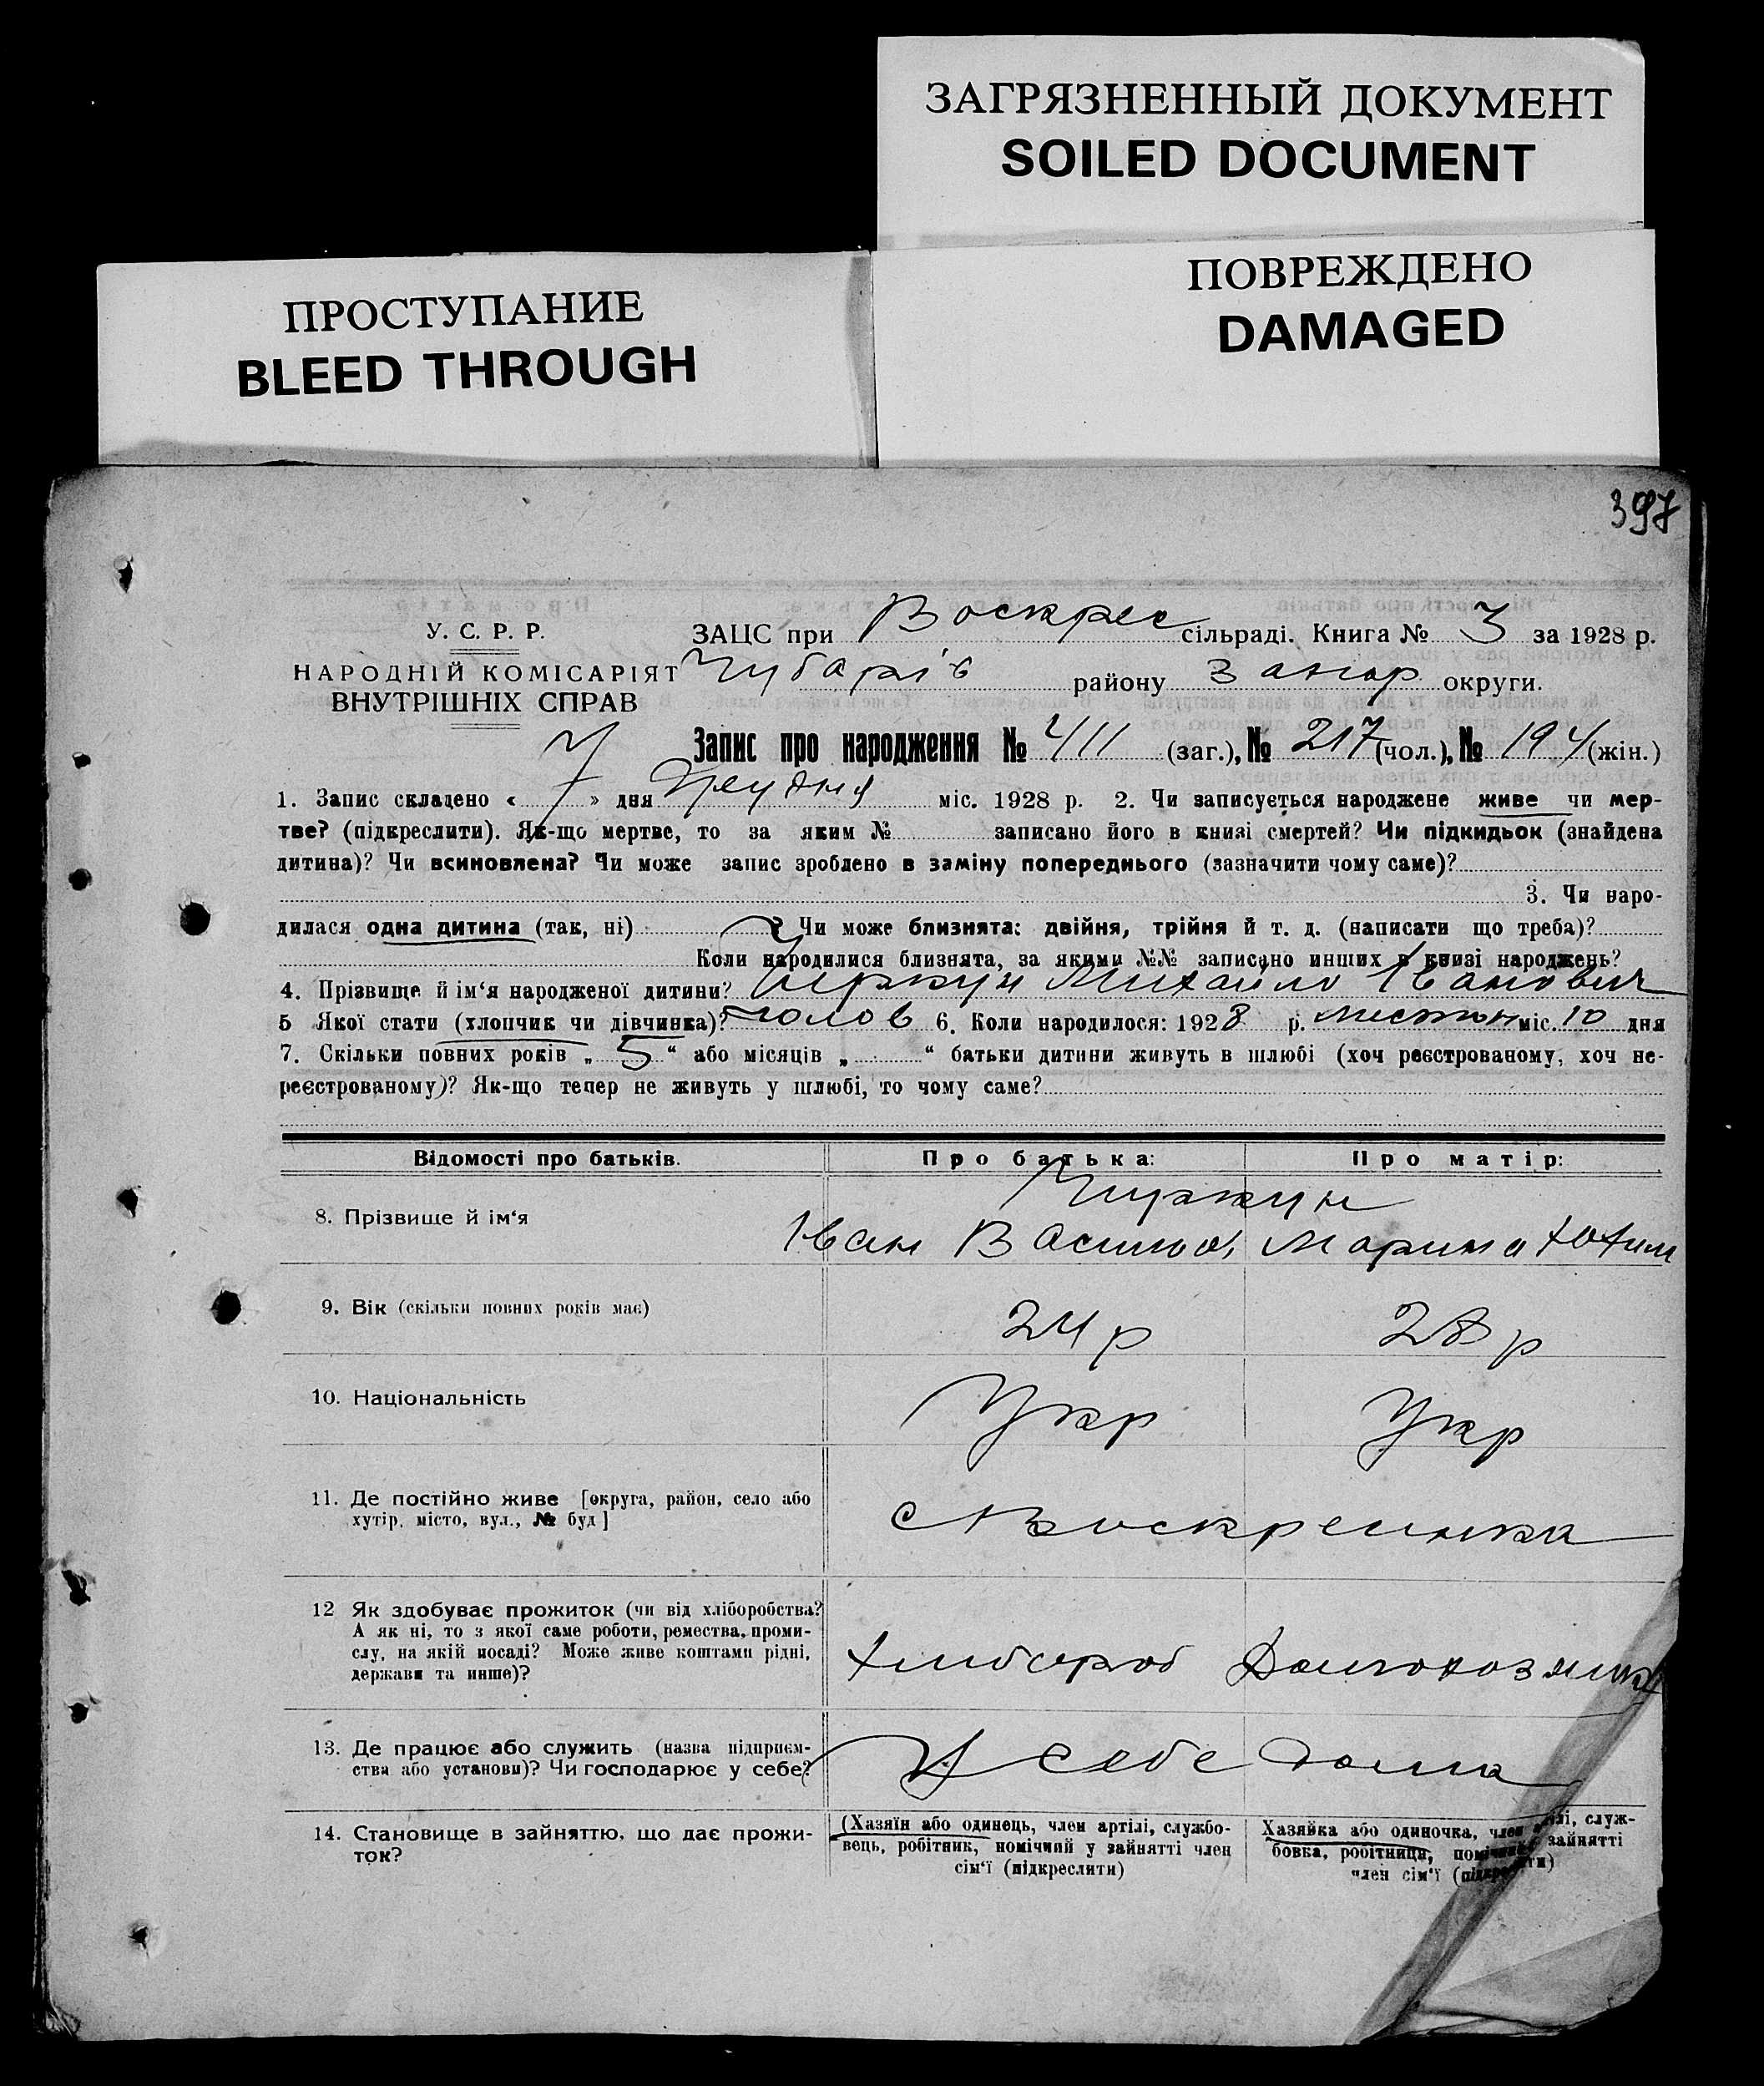 ЗАГРЯЗНЕННЫЙ ДОКУМЕНТ
SOILED DOCUMENT
ПРОСТУПАНИЕ
BLEED THROUGH
ПОВРЕЖДЕНО
DAMAGED
397
У. С. Р. Р.
НАРОДНІЙ КОМІСАРІЯТ
ВНУТРІШНІХ СПРАВ
ЗАЦС при Воскрес сільраді. Книга № 3 за 1928 р.
Чубарів району Запор округи.
Запис про народження № 411 (заг.), № 217 (чол.), № 194 (жін.)
1. Запис складено « 7 » дня Грудня міс. 1928 р. 2. Чи записується народжене живе чи мер-
тве? (підкреслити). Як-що мертве, то за яким № записано його в книзі смертей? Чи підкидьок (знайдена
дитина)? Чи всиновлена? Чи може запис зроблено в заміну попереднього (зазначити чому саме)?
3. Чи наро-
дилася одна дитина (так, ні) ? Чи може близнята: двійня, трійня й т. д. (написати що треба)?
Коли народилися близнята, за якими №№ записано инших в книзі народжень?
4. Прізвище й ім‘я народженої дитини? Чиркун Михайло Іванович
5 Якої стати (хлопчик чи дівчинка)? чолов 6. Коли народилося: 1928 р. листоп міс. 10 дня
7. Скільки повних років „ 5 “ або місяців „ “ батьки дитини живуть в шлюбі (хоч реєстрованому, хоч не-
реєстрованому)? Як-що тепер не живуть у шлюбі, то чому саме?
Відомості про батьків. Про батька: Про матір:
Чиркун
8. Прізвище й ім‘я Іван Василь Марина Юхим
9. Вік (скільки повних років має) 24 р 28 р
10. Національність Укр Укр
11. Де постійно живе [округа, район, село або
хутір, місто, вул., № буд] с Воскресинка
12 Як здобуває прожиток (чи від хліборобства?
А як ні, то з якої саме роботи, ремества, проми-
слу, на якій посаді? Може живе коштами рідні,
держави та инше)? Хлибороб Домохозяйка
13. Де працює або служить (назва підприєм-
ства або установи)? Чи господарює у себе? У себе дома
14. Становище в зайняттю, що дає прожи-
ток?
(Хазяїн або одинець, член артілі, службо-
вець, робітник, помічний у зайнятті член
сім‘ї (підкреслити)
Хазяйка або одиночка, член артілі, служ-
бовка, робітниця, помічна в зайнятті
член сім‘ї (підкреслити)